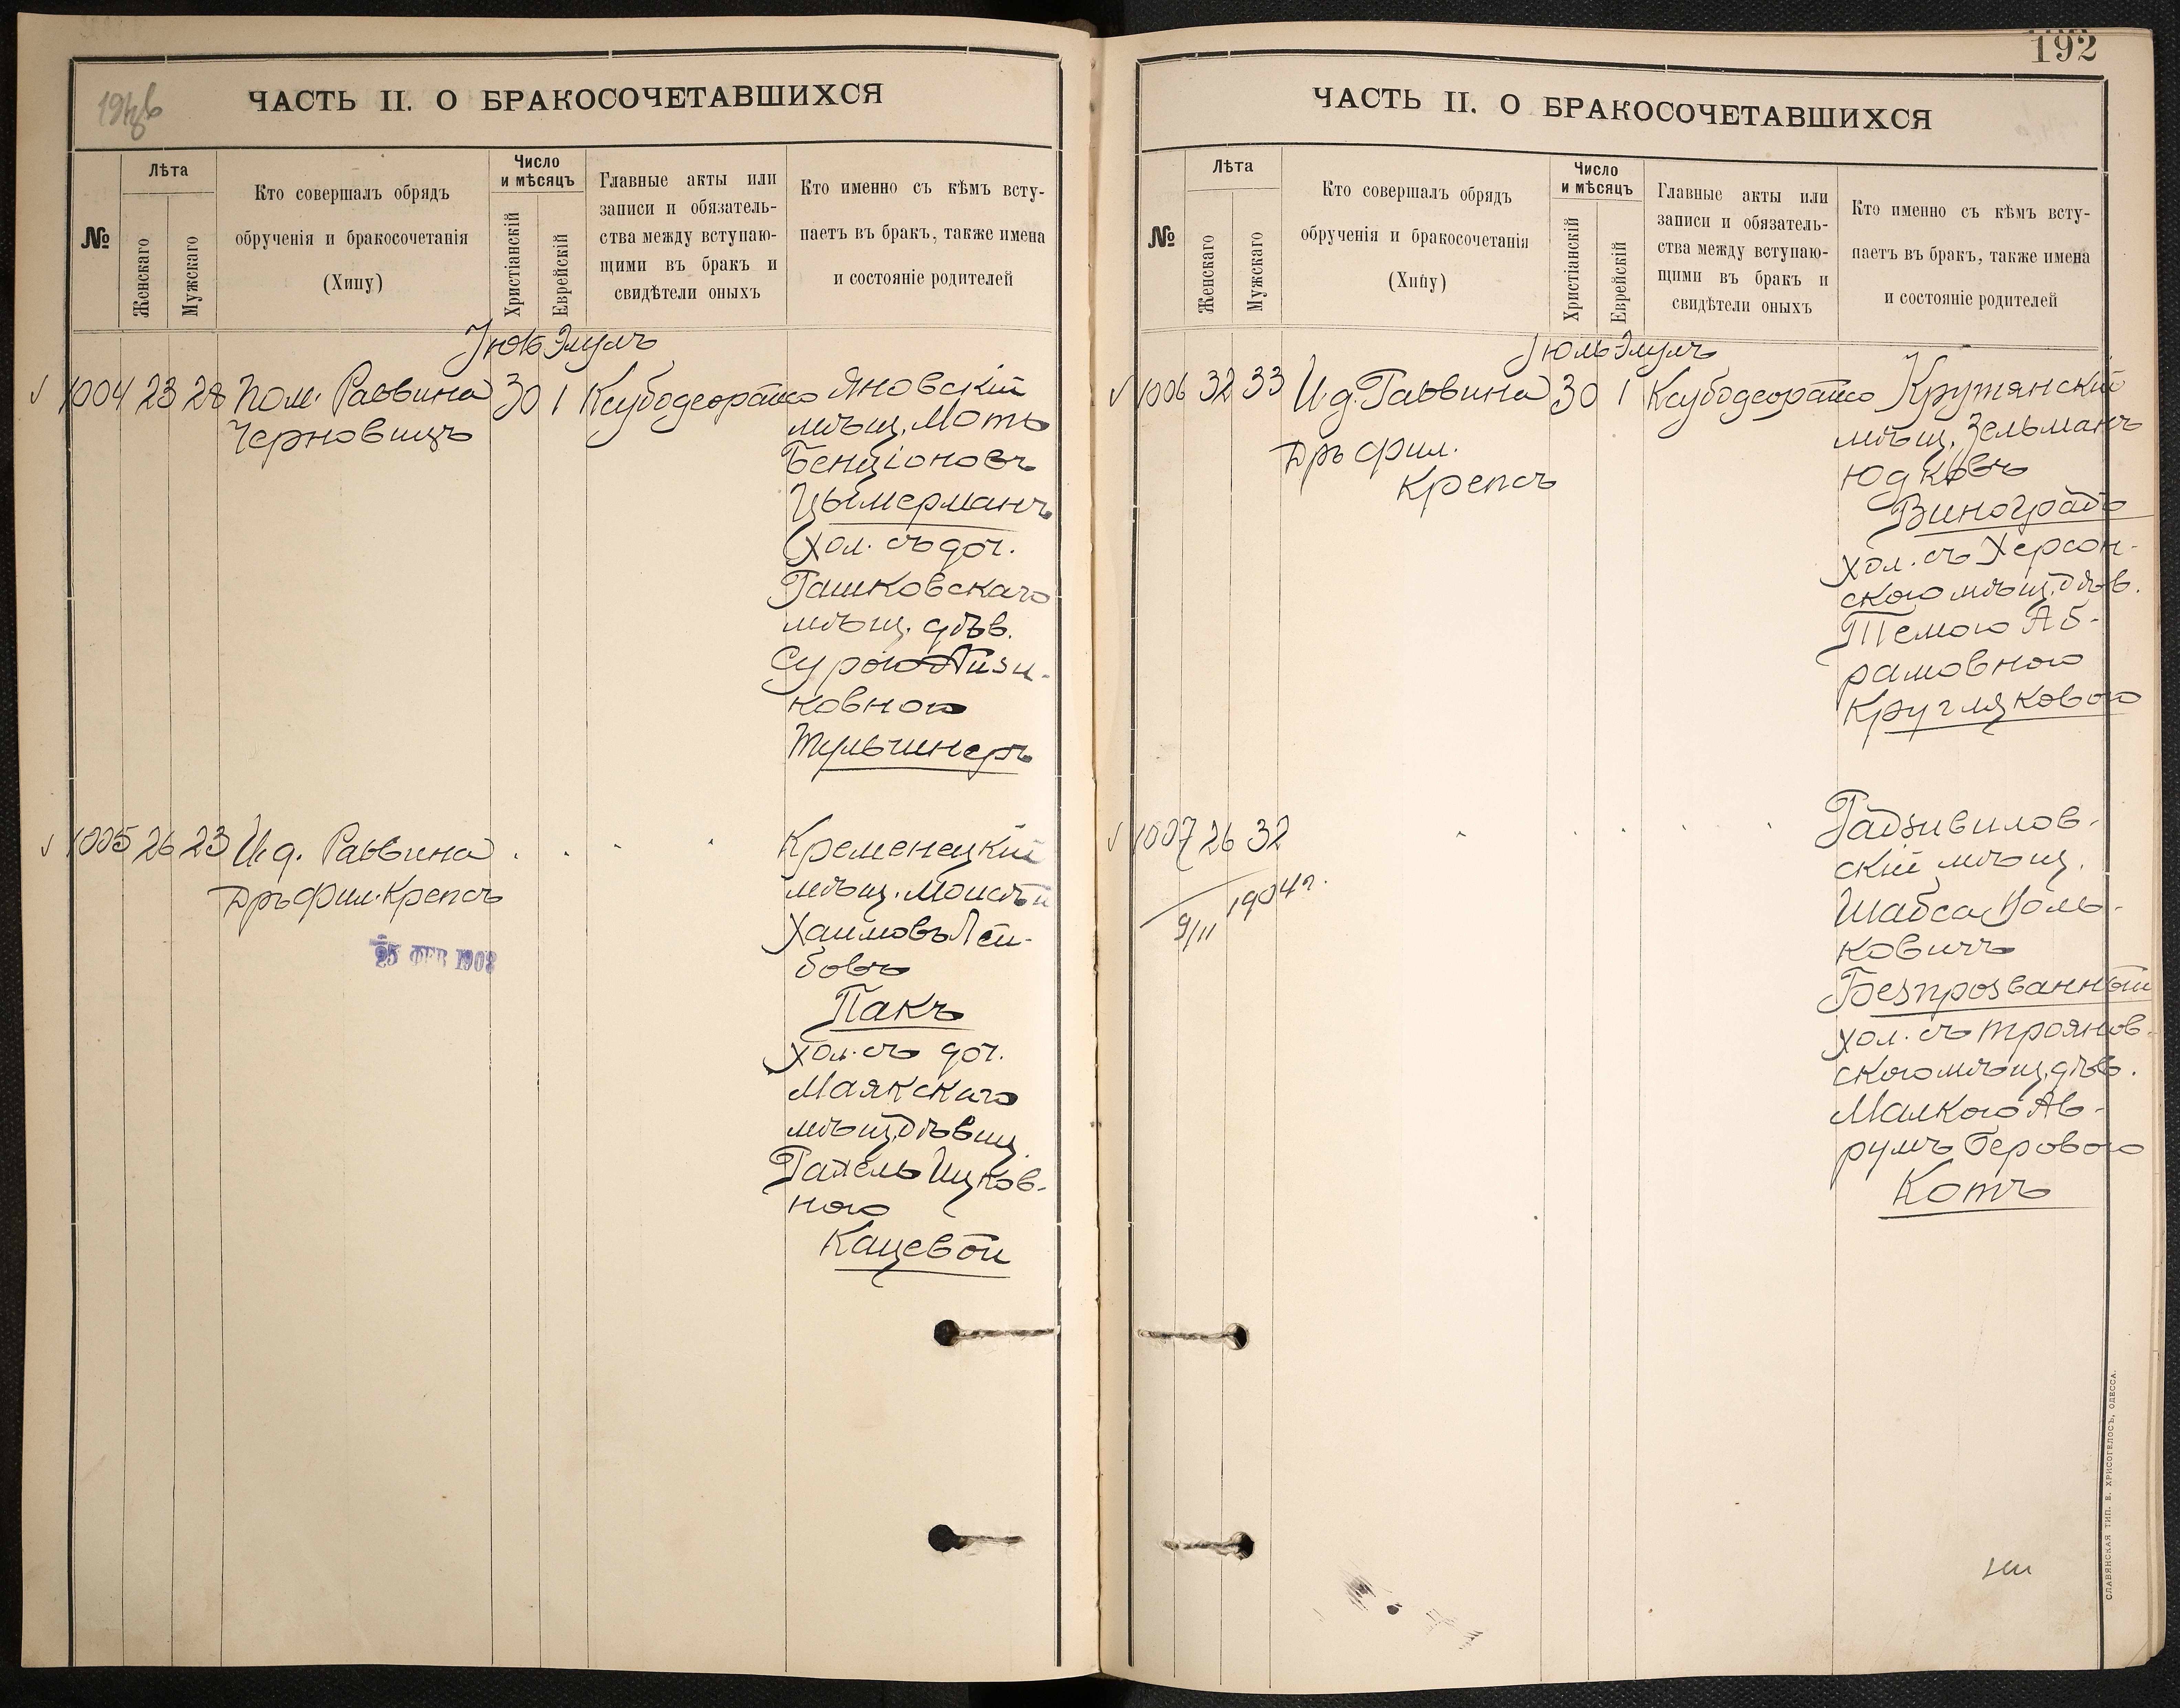 ЧАСТЬ II. О БРАКОСОЧЕТАВШИХСЯ
№
Лѣта
Женскаго
Мужскаго
Кто совершалъ обрядъ
обрученія и бракосочетанія
(Хипу)
Число
и мѣсяцъ
Христіанскій
Еврейскій
Главные акты или
записи и обязатель-
ства между вступаю-
щими въ бракъ и
свидѣтели оныхъ
Кто именно съ кѣмъ всту-
паетъ въ бракъ, также имена
и состояніе родителей
Іюль Элулъ
1004 23 28 Пом. Раввина 30 1 Ксубодеорайсо Яновскій
Черновицъ
мѣщ. Мотъ
Бенціоновъ
Цымерманъ
хол. съ доч.
Рашковскаго
мѣщ. дѣв.
Сурою Айзи-
ковною
Тульчинеръ
1005 26 23 И. д. Раввина
Дръ Фил. Крепсъ
25 ФЕВ 1903
Кременецкій
мѣщ. Моисѣй
Хаимовъ Лей-
бовъ
Пакъ
хол. съ доч.
Маякскаго
мѣщ. дѣвиц.
Рахель Ицков-
ною
Кацевой
192
ЧАСТЬ II. О БРАКОСОЧЕТАВШИХСЯ
№
Лѣта
Женскаго
Мужскаго
Кто совершалъ обрядъ
обрученія и бракосочетанія
(Хипу)
Число
и мѣсяцъ
Христіанскій
Еврейскій
Главные акты или
записи и обязатель-
ства между вступаю-
щими въ бракъ и
свидѣтели оныхъ
Кто именно съ кѣмъ всту-
паетъ въ бракъ, также имена
и состояніе родителей
Іюль Элулъ
1006 32 33 И. д. Раввина 30 1 Ксубодеорайсо Крутянскій
Дръ Фил.
Крепсъ
мѣщ. Зельманъ
Юдковъ
Виноградъ
хол. съ Херсон-
скою мѣщ. дѣв.
Темою Аб-
рамовною
Кругляковою
1007 26 32
9/II 1904 г.
Радзивилов-
скій мѣщ.
Шабса Воль-
ковичъ
Безпрозванный
хол. съ Троянов-
скою мѣщ. дѣв.
Малкою Ав-
румъ Беровою
Котъ
СЛАВЯНСКАЯ ТИП. Е. ХРИСОГЕЛОСЪ, ОДЕССА.